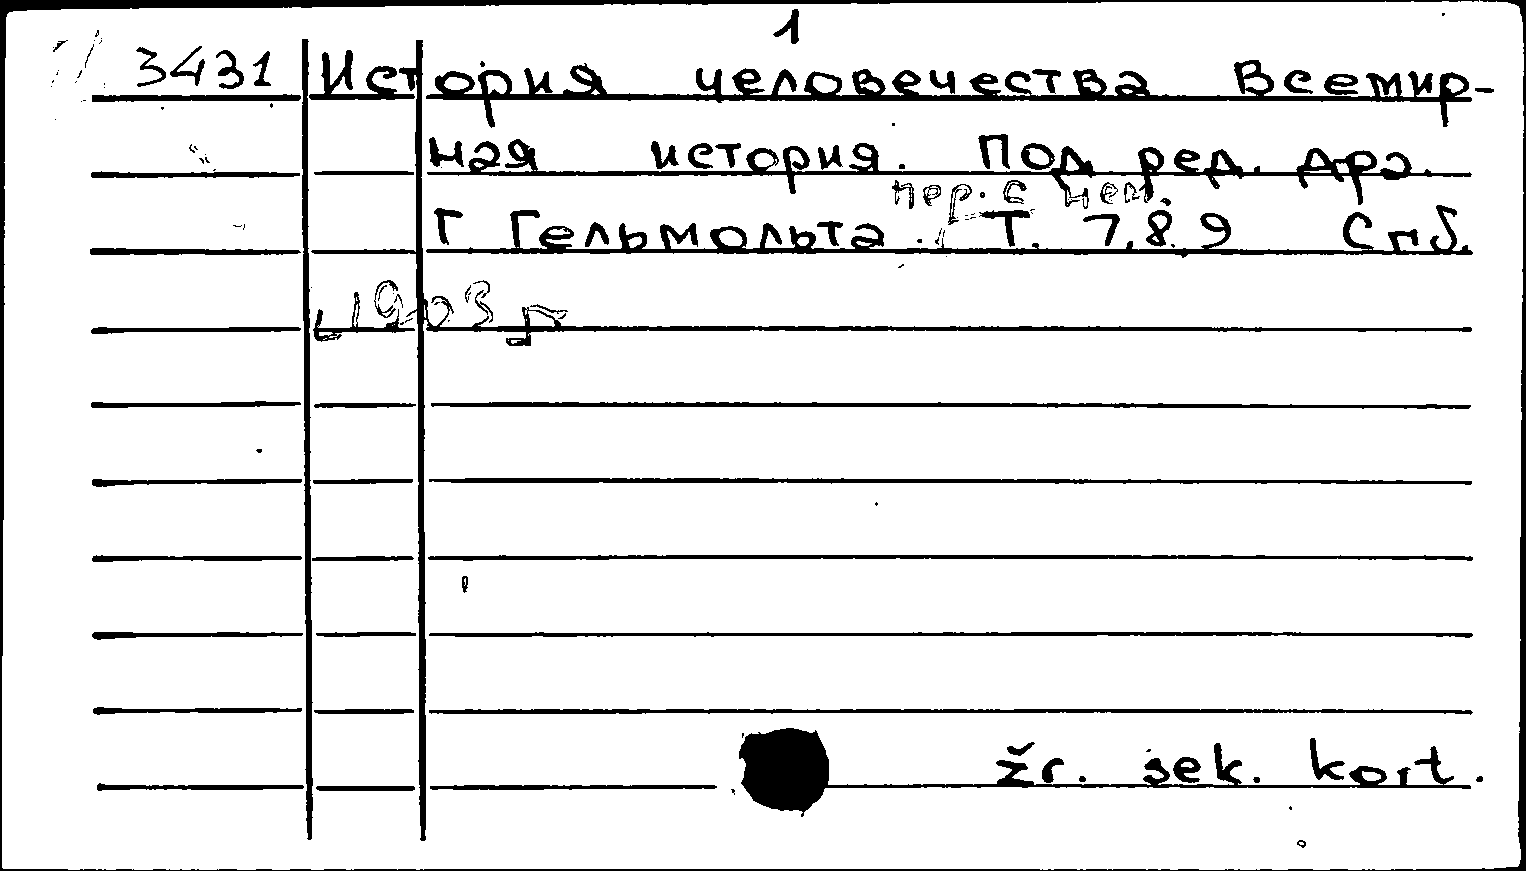 1
3431 История человечества Всемир-
ная история. Под ред. дра.
пер. с нем.
Г. Гельмольта. Т. 7,8,9 Спб.
1903
žr. sek. kort.